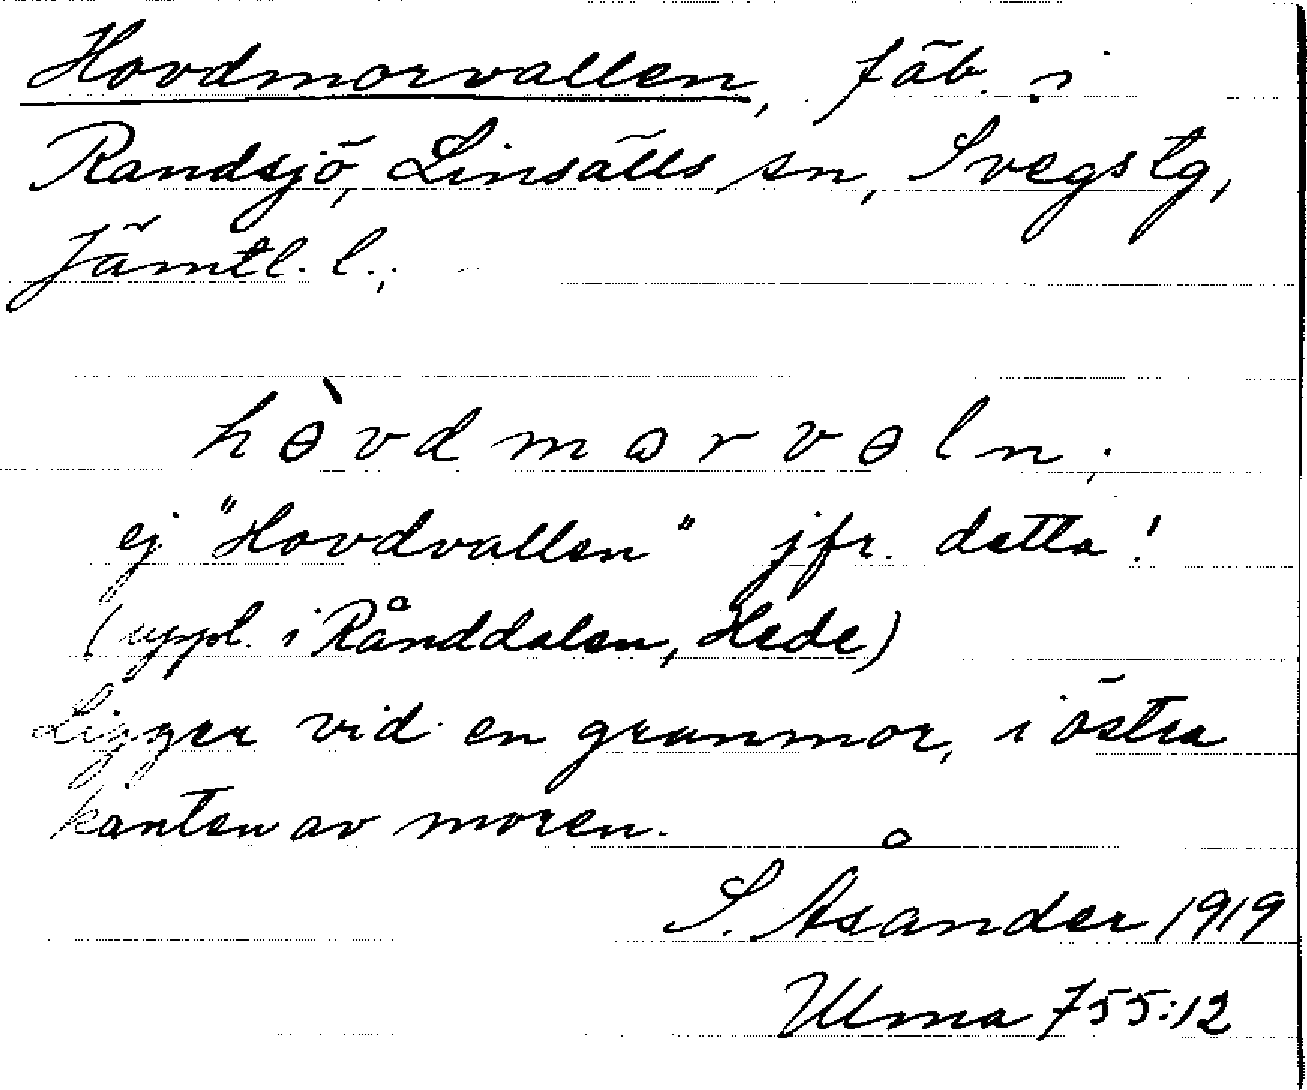 Hovdmorvallen, fäb. i
Randsjö, Linsälls sn, Svegs tg,
Jämtl. l.;
hɵ̀vdmɷrvɵln;
ej "Hovdvallen" jfr. detta!
(uppl. i Rånddalen, Hede)
Ligger vid en granmor, i östra
kanten av moren.
S. Åsander 1919
Ulma 755:12